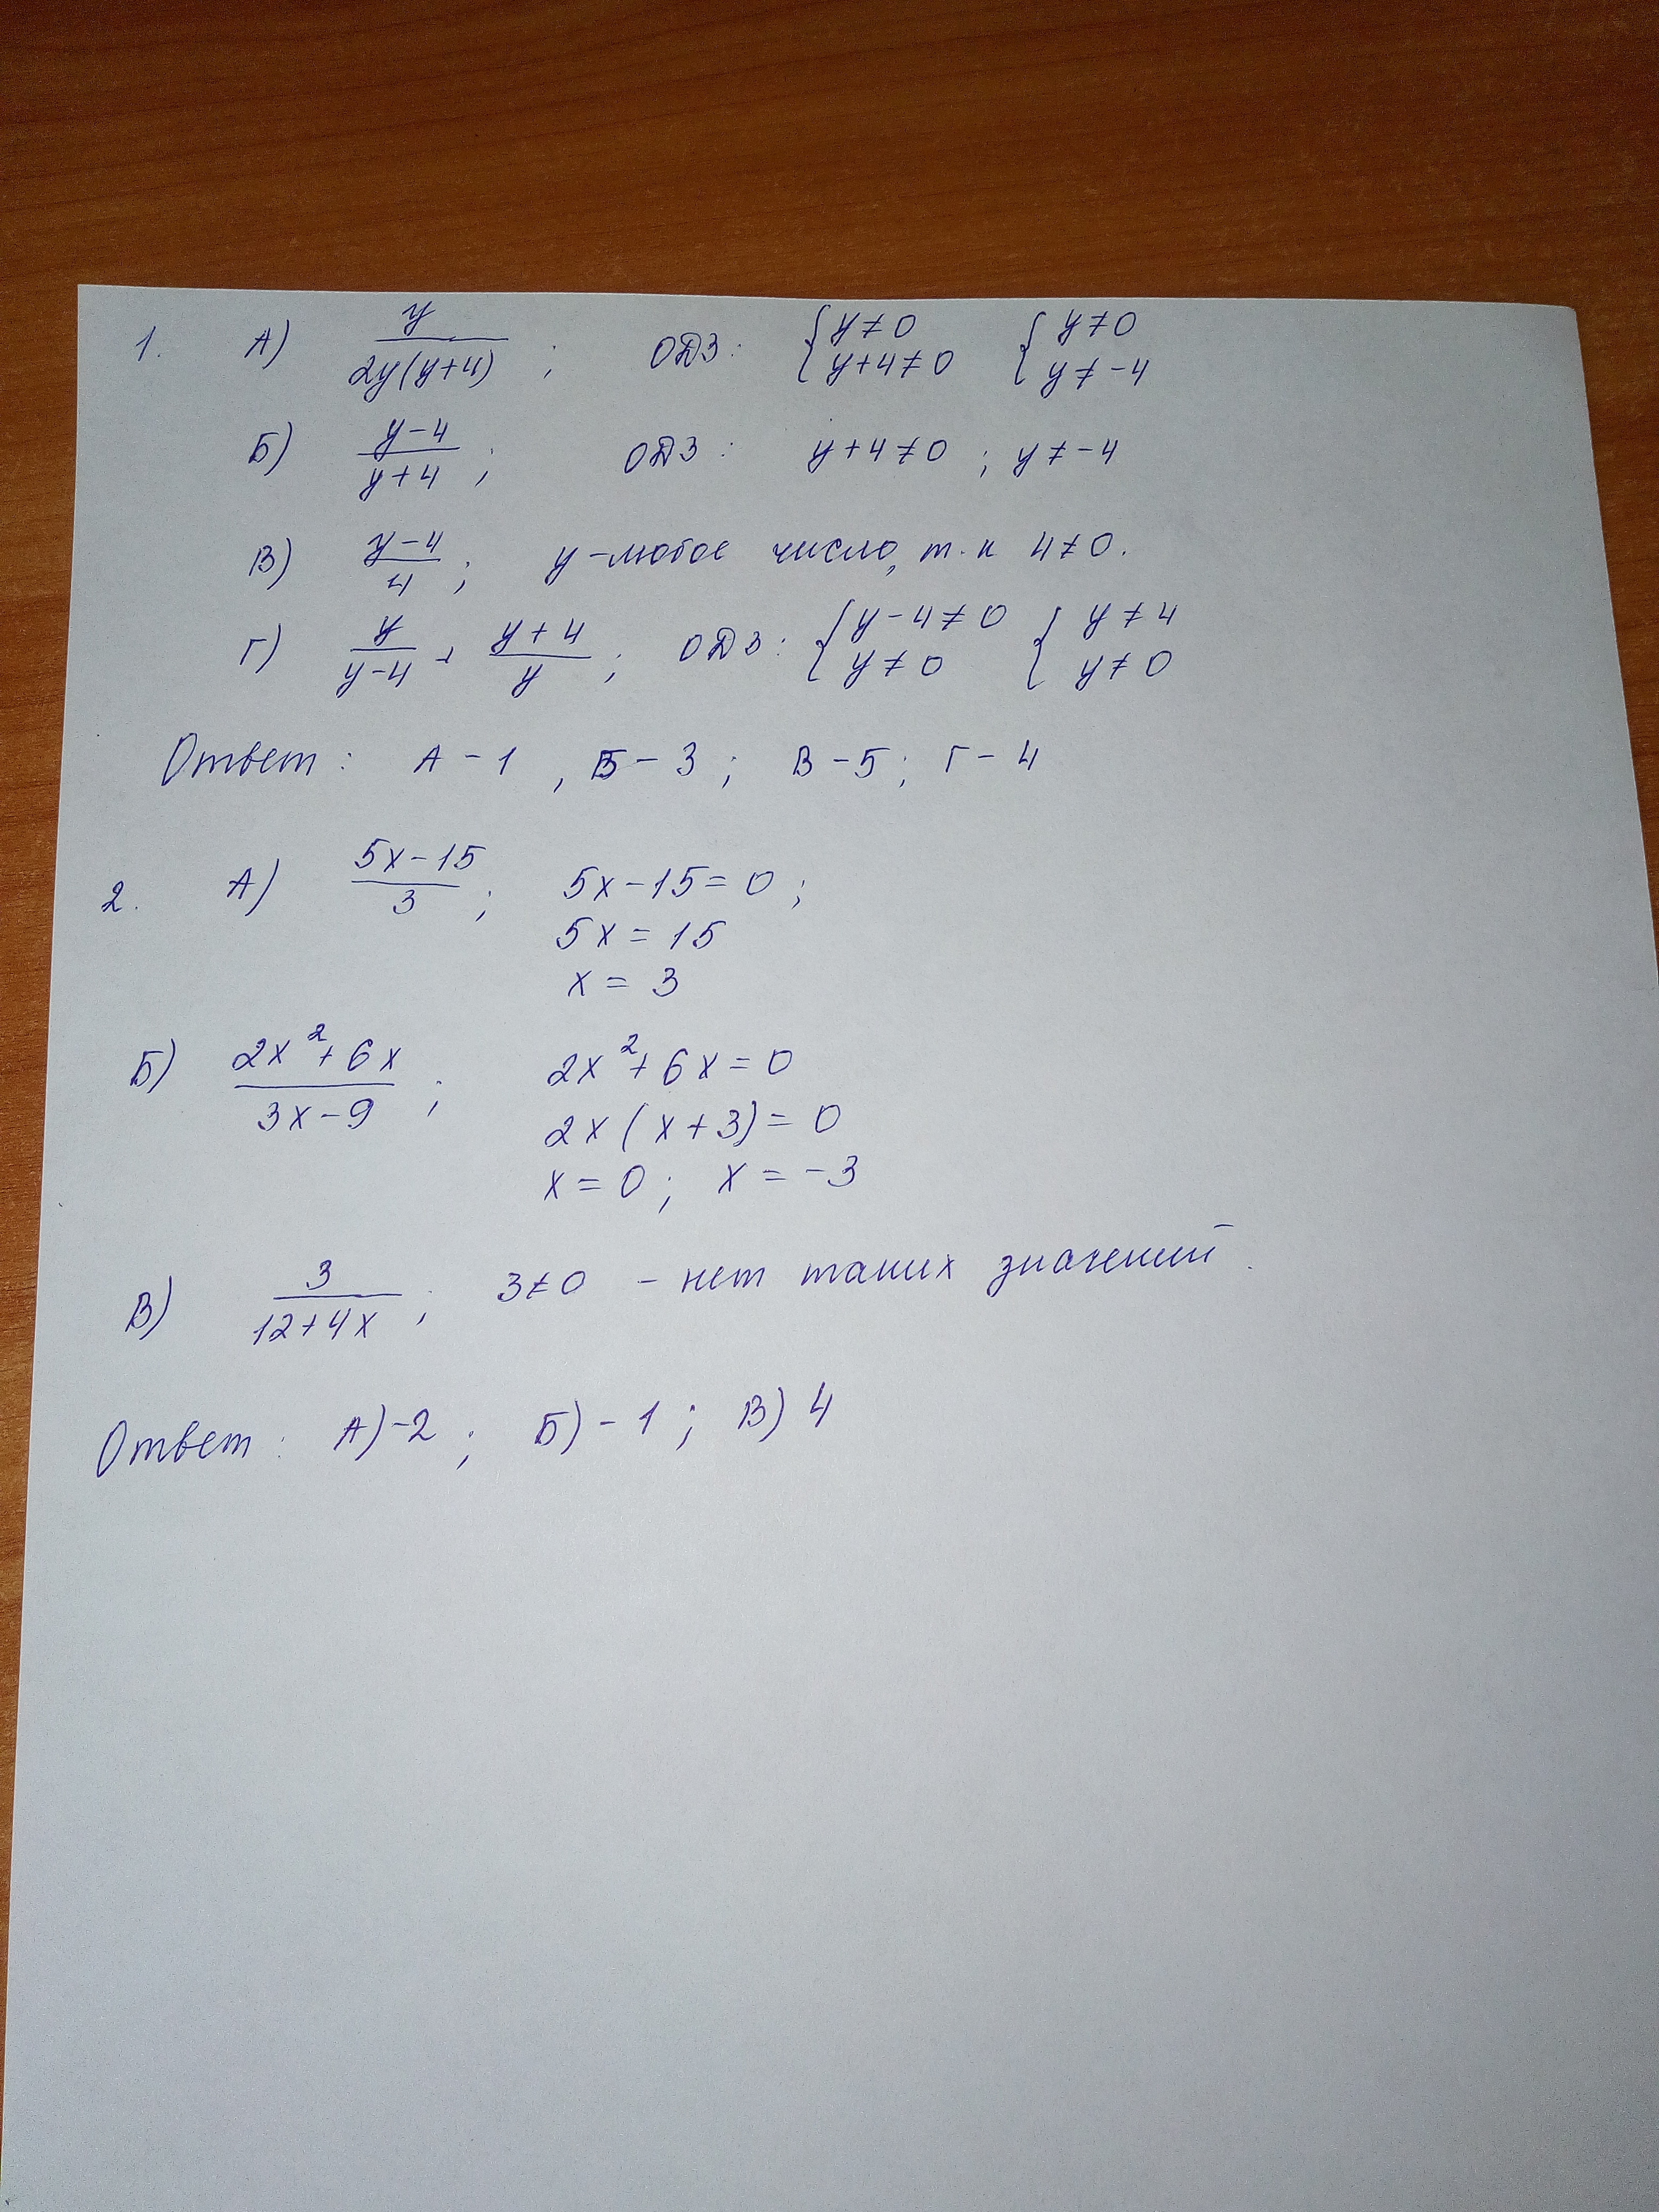 1. А) y/(2y(y+4)); ОДЗ: {y≠0 y+4≠0 {y≠0 y≠-4
Б) (y-4)/(y+4); ОДЗ: y+4≠0; y≠-4
В) (y-4)/4; y-любое число, т.к 4≠0.
Г) y/(y-4) + (y+4)/y; ОДЗ: {y-4≠0 y≠0 {y≠4 y≠0
Ответ: А-1, Б-3; В-5; Г-4
2. А) (5x-15)/3; 5x-15=0;
5x=15
x=3
Б) (2x²+6x)/(3x-9); 2x²+6x=0
2x(x+3)=0
x=0; x=-3
В) 3/(12+4x); 3≠0 - нет таких значений.
Ответ: А)-2; Б)-1; В)4